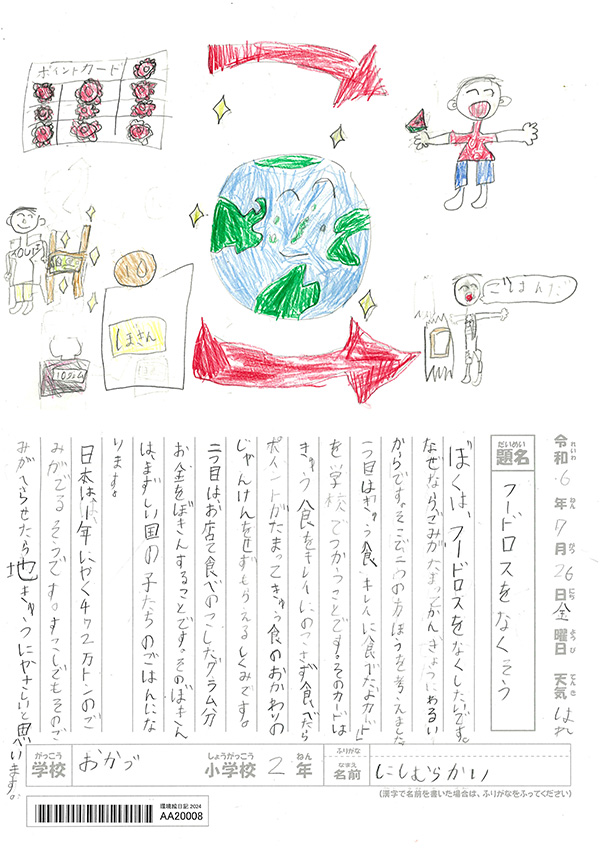 ポイントカード
10
ぼきん
10グラム
ごはんだ
令和6年7月26日金曜日 天気 はれ
れいわ ねん がつ にち ようび てんき
だいめい
題名
フードロスをなくそう
ぼくは、フードロスをなくしたいです。
なぜなら、ごみがたまってかんきょうにわるい
からです。そこで二つの方ほうを考えました
一つ目はきゅう食 キレイに食べたよカード
を学校でつかうことです。そのカードは
きゅう食をキレイにのこさず食べたら
ポイントがたまってきゅう食のおかわりの
じゃんけんをせずもらえるしくみです。
二つ目は、お店で食べのこしたグラム分
お金をぼきんすることです。そのぼきん
は、まずしい国の子たちのごはんにな
ります。
日本は、1年にやく472万トンのご
みがでるそうです。すこしでもそのご
みがへらせたら地きゅうにやさしいと思います。
がっこう
学校
おかづ
しょうがっこう
小学校
2
ねん
年
ふりがな
なまえ
名前
にしむらかい
(漢字で名前を書いた場合は、ふりがなをふってください)
環境絵日記2024
AA20008